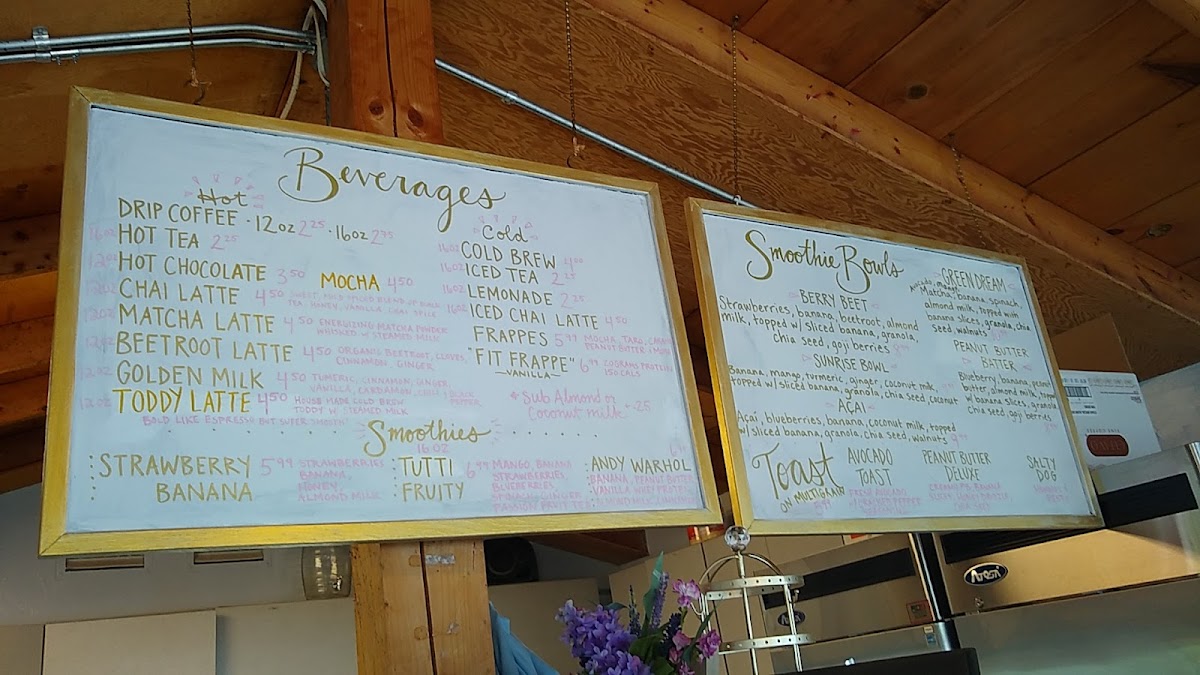 Beverages
Hot
DRIP COFFEE · 12oz 2.25 · 16oz 2.75
16oz HOT TEA 2.25
12oz HOT CHOCOLATE 3.50 MOCHA 4.50
12oz CHAI LATTE 4.50 SWEET, MILD SPICED BLEND OF BLACK
TEA, HONEY, VANILLA, CHAI SPICE
12oz MATCHA LATTE 4.50 ENERGIZING MATCHA POWDER
WHISKED W/ STEAMED MILK
12oz BEETROOT LATTE 4.50 ORGANIC BEETROOT, CLOVES,
CINNAMON, GINGER
12oz GOLDEN MILK 4.50 TUMERIC, CINNAMON, GINGER,
VANILLA, CARDAMON, CHILI & BLACK
PEPPER
12oz TODDY LATTE 4.50 HOUSE MADE COLD BREW
TODDY W/ STEAMED MILK
BOLD LIKE ESPRESSO BUT SUPER SMOOTH!
Cold
16oz COLD BREW 4.00
16oz ICED TEA 2.25
16oz LEMONADE 2.25
16oz ICED CHAI LATTE 4.50
FRAPPES 5.99 MOCHA, TARO,
PEANUT BUTTER
"FIT FRAPPE" 6.99 20GRAMS PROTEIN
-VANILLA- 150 CALS
* Sub Almond or
Coconut milk .25
Smoothies
16 OZ
STRAWBERRY
BANANA
5.99 STRAWBERRIES
BANANA,
HONEY,
ALMOND MILK
TUTTI
FRUITY
6.99 MANGO, BANANA
STRAWBERRIES,
BLUEBERRIES
SPINACH, GINGER
PASSION FRUIT TEA
6.99
ANDY WARHOL
BANANA, PEANUT BUTTER
VANILLA WHEY PROTEIN
ALMOND MILK
Smoothie Bowls
BERRY BEET
Strawberries, banana, beetroot, almond
milk, topped w/ sliced banana, granola,
chia seed, goji berries 8.99
SUNRISE BOWL
Banana, mango, turmeric, ginger, coconut milk,
topped w/ sliced banana, granola, chia seed, coconut
AÇAI
Açai, blueberries, banana, coconut milk, topped
w/ sliced banana, granola, chia seed, walnuts 9.99
GREEN DREAM
Avocado, mango,
Matcha, banana, spinach,
almond milk, topped with
banana slices, granola, chia
seed, walnuts
PEANUT BUTTER
BATTER
Blueberry, banana, peanut
butter, almond milk, topped
w/ banana slices, granola
chia seed, goji berries
8.99
Toast
ON MULTIGRAIN
AVOCADO
TOAST
FRESH AVOCADO
PEANUT BUTTER
DELUXE
SALTY
DOG
Atosa